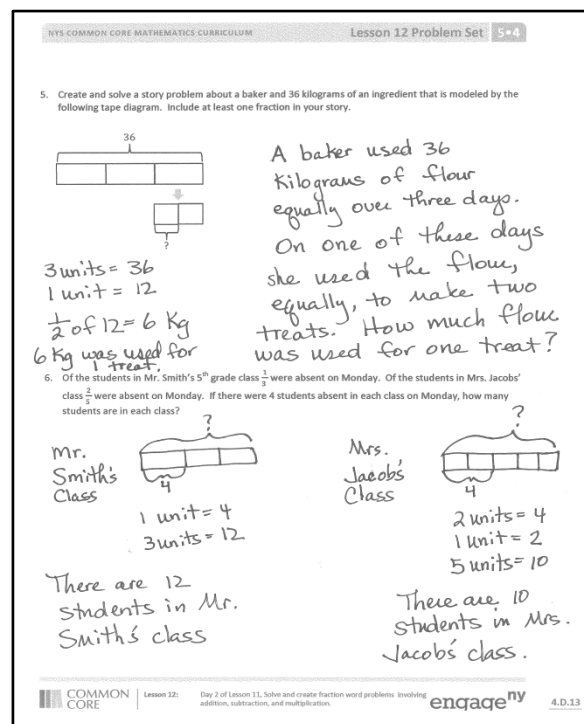 NYS COMMON CORE MATHEMATICS CURRICULUM
Lesson 12 Problem Set 5•4
5. Create and solve a story problem about a baker and 36 kilograms of an ingredient that is modeled by the
following tape diagram. Include at least one fraction in your story.
36
?
3 units = 36
1 unit = 12
1/2 of 12 = 6 Kg
6 Kg was used for
1 treat.
A baker used 36
Kilograms of flour
equally over three days.
On one of these days
she used the flour,
equally, to make two
treats. How much flour
was used for one treat?
6. Of the students in Mr. Smith's 5th grade class 1/3 were absent on Monday. Of the students in Mrs. Jacobs'
class 2/5 were absent on Monday. If there were 4 students absent in each class on Monday, how many
students are in each class?
Mr.
Smith's
Class
?
4
1 unit = 4
3 units = 12
There are 12
students in Mr.
Smith's class
Mrs.
Jacobs'
Class
?
4
2 units = 4
1 unit = 2
5 units = 10
There are 10
students in Mrs.
Jacobs' class.
COMMON
CORE
Lesson 12:
Day 2 of Lesson 11, Solve and create fraction word problems involving
addition, subtraction, and multiplication.
engage ny
4.D.13